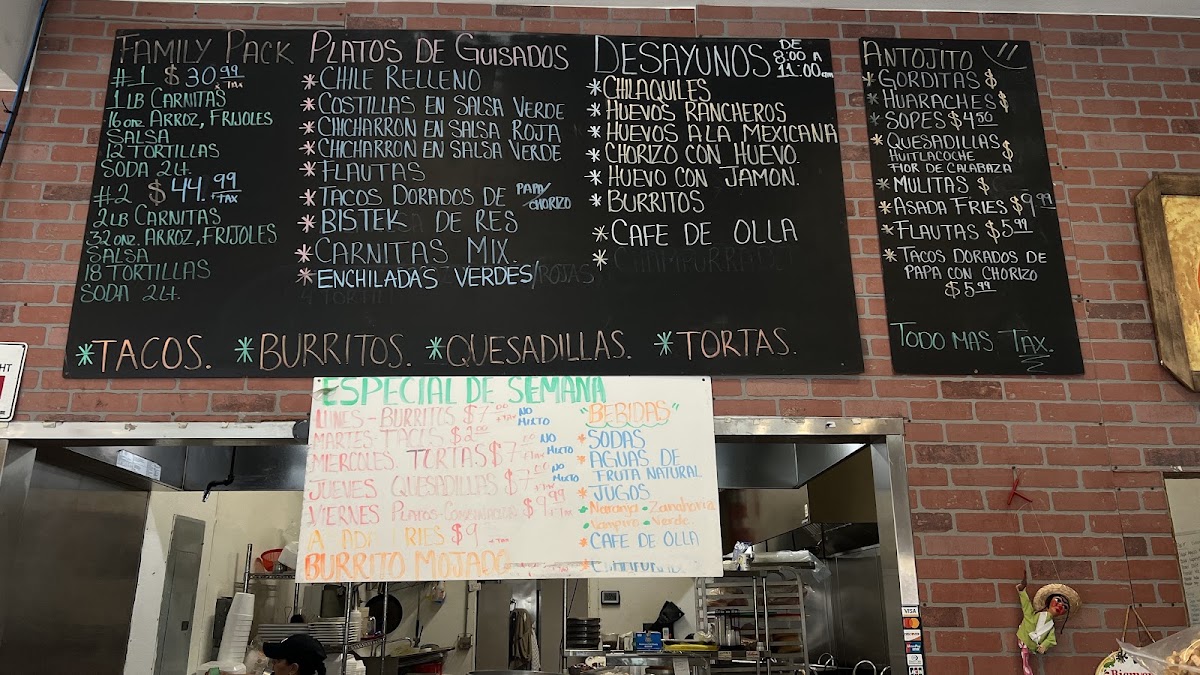 FAMILY PACK
#1 $30.99 + TAX
1 LB CARNITAS
16 onz. ARROZ, FRIJOLES
SALSA
12 TORTILLAS
SODA 2 Lt.
#2 $44.99 + TAX
2 LB CARNITAS
32 onz. ARROZ, FRIJOLES
SALSA
18 TORTILLAS
SODA 2 Lt.
PLATOS DE GUISADOS
* CHILE RELLENO
* COSTILLAS EN SALSA VERDE
* CHICHARRON EN SALSA ROJA
* CHICHARRON EN SALSA VERDE
* FLAUTAS
* TACOS DORADOS DE PAPA/CHORIZO
* BISTEK DE RES
* CARNITAS MIX.
* ENCHILADAS VERDES/ROJAS
DESAYUNOS DE 8:00 A 11:00 am
* CHILAQUILES
* HUEVOS RANCHEROS
* HUEVOS A LA MEXICANA
* CHORIZO CON HUEVO.
* HUEVO CON JAMON.
* BURRITOS
* CAFE DE OLLA
* CHAMPURRADO
* TACOS. * BURRITOS. * QUESADILLAS. * TORTAS.
ANTOJITO
* GORDITAS $
* HUARACHES $
* SOPES $4.50
* QUESADILLAS $
HUITLACOCHE
FLOR DE CALABAZA
* MULITAS $
* ASADA FRIES $9.99
* FLAUTAS $5.99
* TACOS DORADOS DE
PAPA CON CHORIZO
$5.99
TODO MAS TAX.
ESPECIAL DE SEMANA
LUNES - BURRITOS $7.00 + TAX NO MIXTO
MARTES TACOS $2.00
MIERCOLES. TORTAS $7.00 + TAX NO MIXTO
JUEVES QUESADILLAS $7.00 + TAX NO MIXTO
VIERNES PLATOS-COMBINADOR $9.99 + TAX
$9 + TAX
BURRITO MOJADO
"BEBIDAS"
* SODAS
* AGUAS DE
FRUTA NATURAL
* JUGOS
• Naranja • Zanahoria
• Vampiro • Verde
* CAFE DE OLLA
VISA